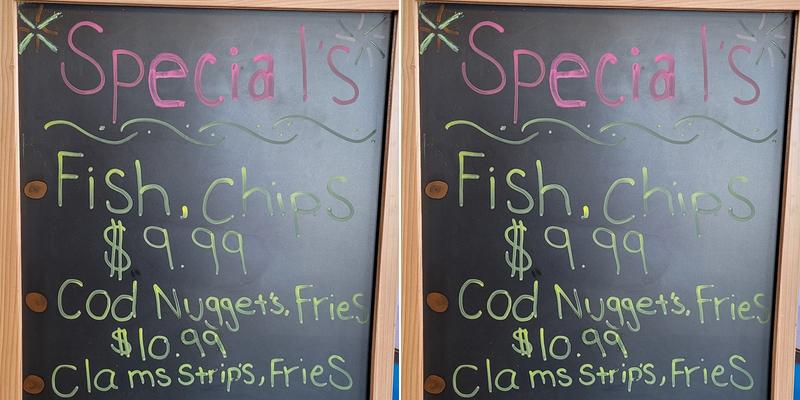 Special's
Fish, Chips
$9.99
Cod Nugget's, Fries
$10.99
Clams Strip's, Fries
Special's
Fish, Chips
$9.99
Cod Nugget's, Fries
$10.99
Clams Strip's, Fries